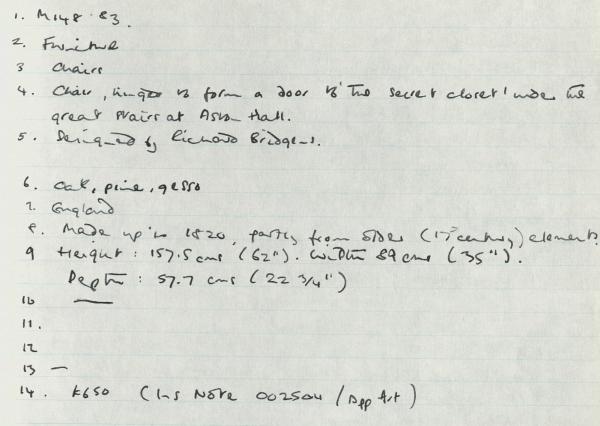 1. M148.83.
2. Furniture
3 Chairs
4. Chair, hinged to form a door to 'the secret closet' under the
great stairs at Aston Hall.
5. Designed by Richard Bridgens.
6. Oak, pine, gesso
7. England
8. Made up in 1820, partly from older (17th century) elements.
9 Height: 157.5 cms (62"). Width 89 cms (35").
Depth: 57.7 cms (22 3/4")
10 —
11.
12
13 —
14. £650 (Ins Note 002504 / Dpp Art)